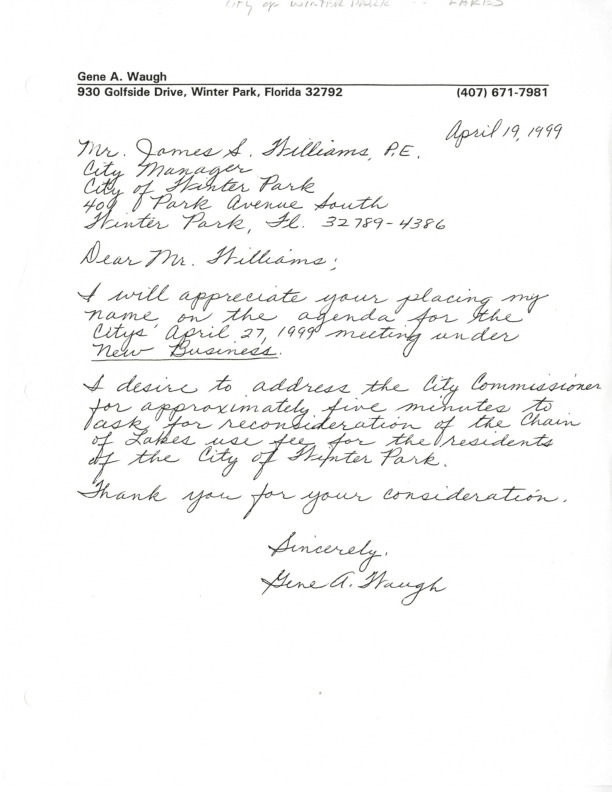 City of WINTER PARK -- LAKES
Gene A. Waugh
930 Golfside Drive, Winter Park, Florida 32792 (407) 671-7981
April 19, 1999
Mr. James S. Williams, P.E.
City Manager
City of Winter Park
401 Park Avenue South
Winter Park, Fl. 32789-4386
Dear Mr. Williams;
I will appreciate your placing my
name on the agenda for the
Citys' April 27, 1999 meeting under
New Business.
I desire to address the City Commissioner
for approximately five minutes to
ask for reconsideration of the Chain
of Lakes use fee for the residents
of the City of Winter Park.
Thank you for your consideration.
Sincerely,
Gene A. Waugh